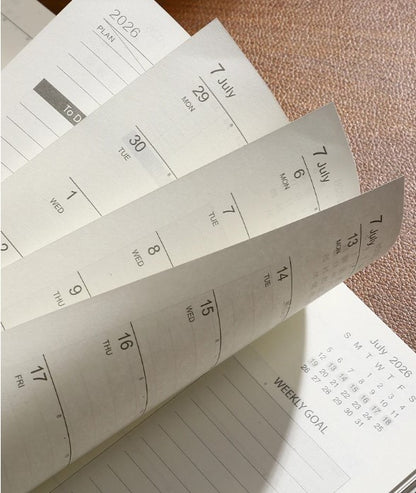 2026
PLAN
To D
7 July
29
MON
30
TUE
1
WED
2
7 July
6
MON
7
TUE
8
WED
9
THU
7 July
13
MON
14
TUE
15
WED
16
THU
17
FRI
July 2026
S M T W T F S
1 2 3 4
5 6 7 8 9 10 11
12 13 14 15 16 17 18
19 20 21 22 23 24 25
26 27 28 29 30 31
WEEKLY GOAL